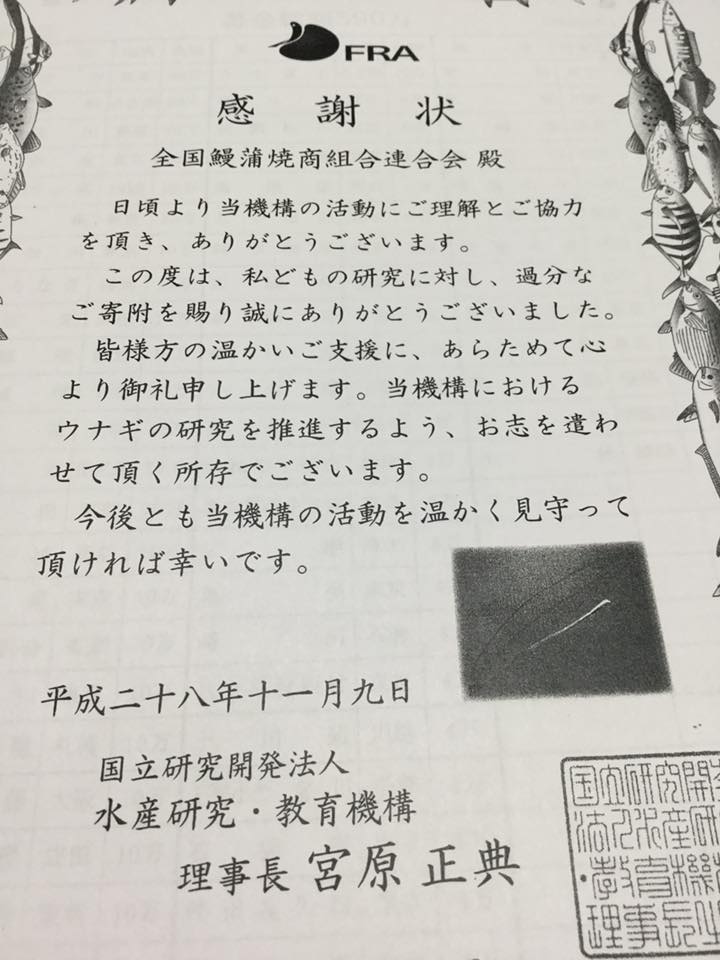 FRA
感謝状
全国鰻蒲焼商組合連合会 殿
日頃より当機構の活動にご理解とご協力
を頂き、ありがとうございます。
この度は、私どもの研究に対し、過分な
ご寄附を賜り誠にありがとうございました。
皆様方の温かいご支援に、あらためて心
より御礼申し上げます。当機構における
ウナギの研究を推進するよう、お志を遣わ
せて頂く所存でございます。
今後とも当機構の活動を温かく見守って
頂ければ幸いです。
平成二十八年十一月九日
国立研究開発法人
水産研究・教育機構
理事長 宮原 正典
国立研究開
法人水産研
・教育機
理事長